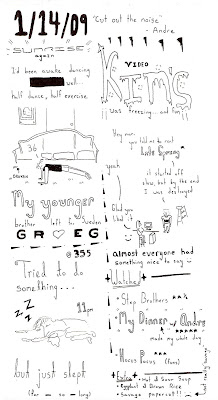 1/14/09
"Cut out the noise"
- Andre
SUNRISE
again
I'd been awake dancing
well
half dance, half exercise
36
My younger
brother left for Sweden
GR EG
@ 355
Tried to do
something...
ZZZ
11pm
but just slept
(for so long)
VIDEO
KIM'S
was freezing... and fun
Hey man,
you told me to read
yeah
it started off
slow, but by the end
I was destroyed
Glad you
liked it
almost everyone had
something nice to say
Watched
• Step Brothers
• My Dinner w/ Andre
made my whole day
• Hocus Pocus (fam)
Eats
• Hot & Sour Soup
• Eggroll & Brown Rice
• Savage papercut!!